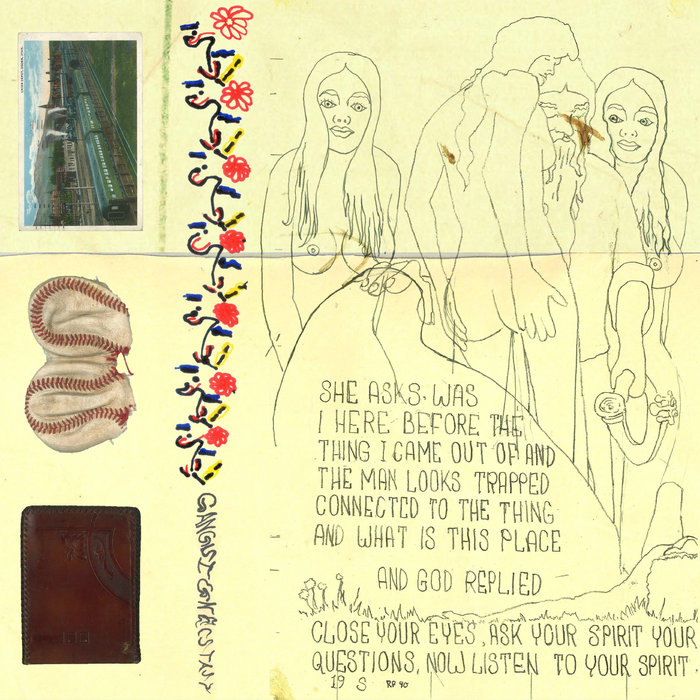 SHE ASKS. WAS
I HERE BEFORE THE
THING I CAME OUT OF AND
THE MAN LOOKS TRAPPED
CONNECTED TO THE THING
AND WHAT IS THIS PLACE
AND GOD REPLIED
CLOSE YOUR EYES, ASK YOUR SPIRIT YOUR
QUESTIONS, NOW LISTEN TO YOUR SPIRIT.
19 S RP 90